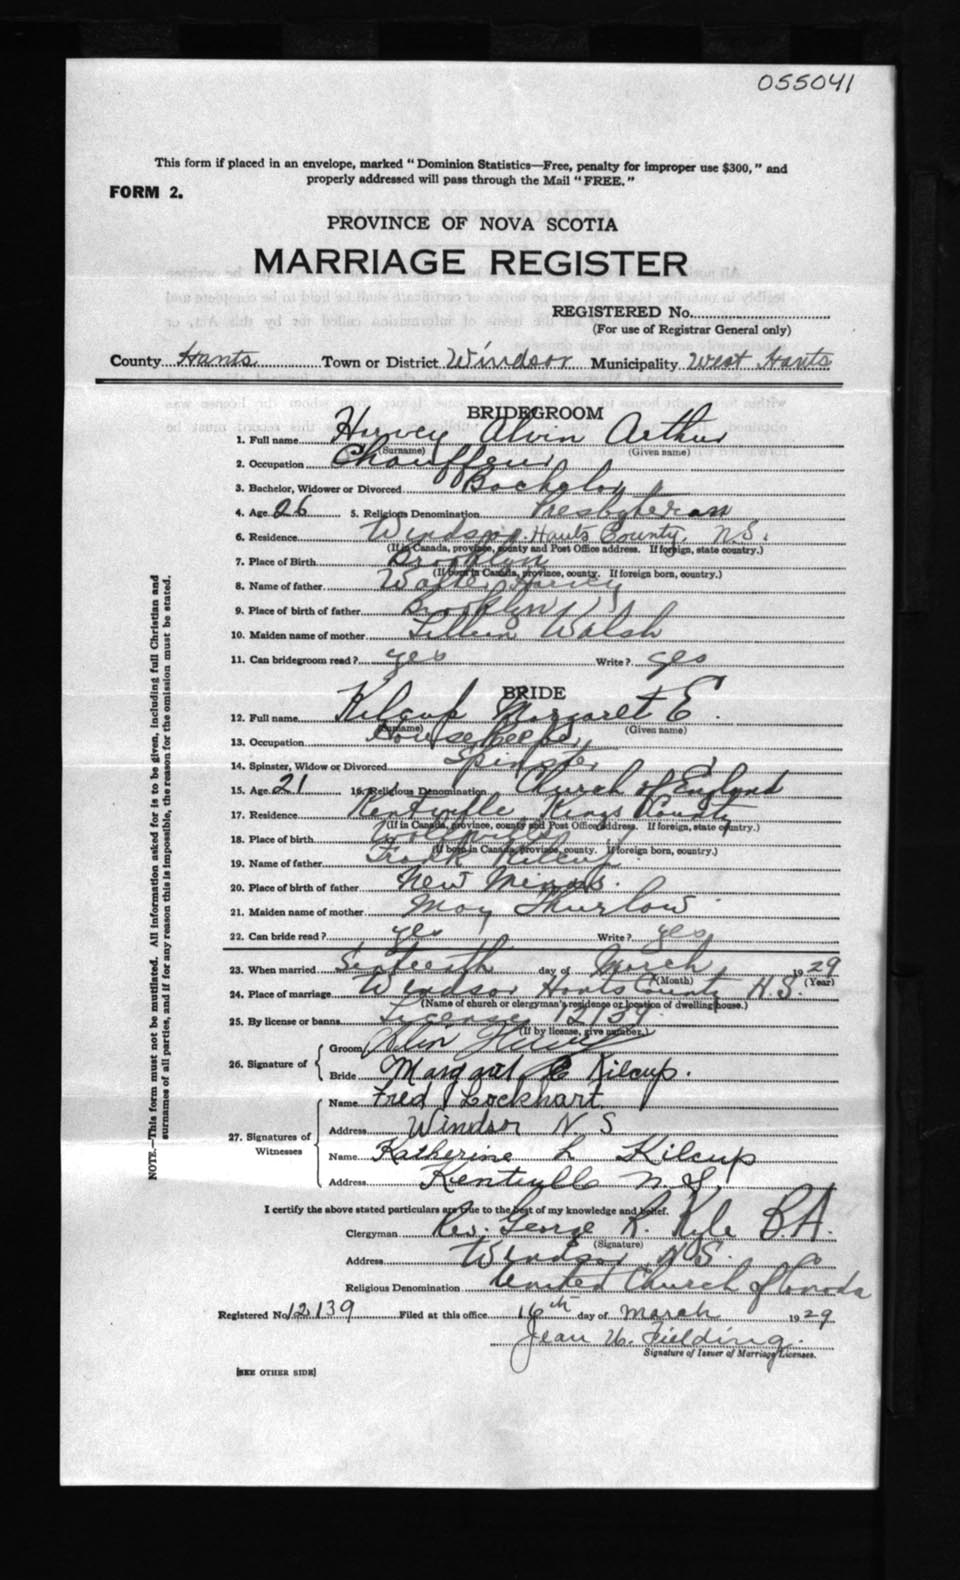 055041
This form if placed in an envelope, marked "Dominion Statistics—Free, penalty for improper use $300," and
properly addressed will pass through the Mail "FREE."
FORM 2.
PROVINCE OF NOVA SCOTIA
MARRIAGE REGISTER
REGISTERED No.
(For use of Registrar General only)
County Hants Town or District Windsor Municipality West Hants
BRIDEGROOM
1. Full name Harvey Alvin Arthur
(Surname) (Given name)
2. Occupation Chauffeur
3. Bachelor, Widower or Divorced Bachelor
4. Age 26 5. Religious Denomination Presbyterian
6. Residence Windsor Hants County N.S.
(If in Canada, province, county and Post Office address. If foreign, state country.)
7. Place of Birth Brooklyn
(If born in Canada, province, county. If foreign born, country.)
8. Name of father Walter Harvey
9. Place of birth of father Brooklyn
10. Maiden name of mother Lillian Walsh
11. Can bridegroom read? yes Write? yes
BRIDE
12. Full name Kilcup Margaret E.
(Surname) (Given name)
13. Occupation Housekeeper
14. Spinster, Widow or Divorced Spinster
15. Age 21 16. Religious Denomination Church of England
17. Residence Kentville Kings County
(If in Canada, province, county and Post Office address. If foreign, state country.)
18. Place of birth Wolfville
(If born in Canada, province, county. If foreign born, country.)
19. Name of father Frank Kilcup
20. Place of birth of father New Minas.
21. Maiden name of mother May Thurlow
22. Can bride read? yes Write? yes
23. When married Sixteenth day of March 1929
(Month) (Year)
24. Place of marriage Windsor Hants County N.S.
(Name of church or clergyman's residence or location of dwelling house.)
25. By license or banns License 12139
(If by license, give number.)
26. Signature of
Groom Alvin Harvey
Bride Margaret E Kilcup.
27. Signatures of Witnesses
Name Fred Lockhart
Address Windsor N S
Name Katherine L Kilcup
Address Kentville N.S.
I certify the above stated particulars are true to the best of my knowledge and belief.
Clergyman Rev. George R. Kyle B.A.
(Signature)
Address Windsor N.S.
Religious Denomination United Church of Canada
Registered No 12139 Filed at this office 16th day of March 1929
Jean W. Fielding.
Signature of Issuer of Marriage Licenses.
[SEE OTHER SIDE]
NOTE.—This form must not be mutilated. All information asked for is to be given, including full Christian and
surnames of all parties, and if for any reason this is impossible, the reason for the omission must be stated.